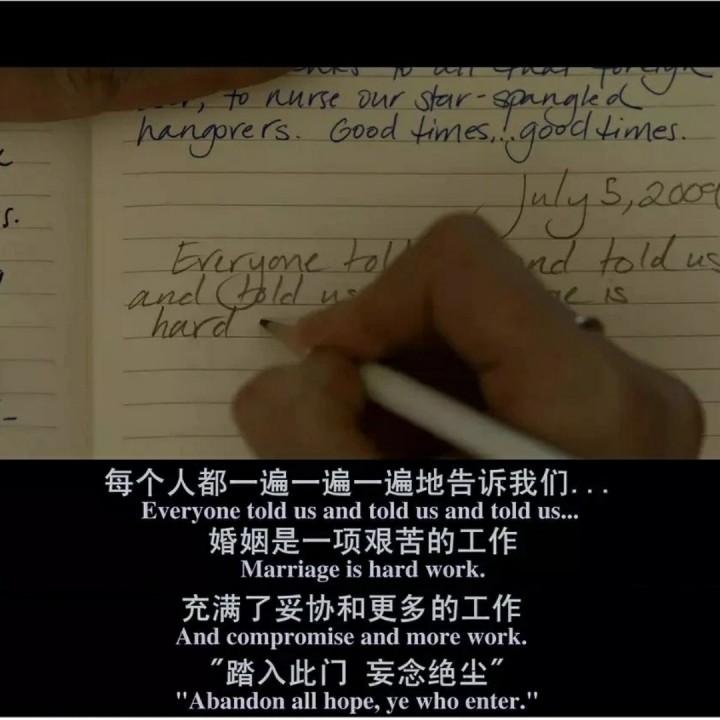 to all that foreign
to nurse our star-spangled
hangovers. Good times,.. good times.
s.
July 5, 2009
Everyone nd told us
and told us is
hard
每个人都一遍一遍一遍地告诉我们...
Everyone told us and told us and told us...
婚姻是一项艰苦的工作
Marriage is hard work.
充满了妥协和更多的工作
And compromise and more work.
"踏入此门 妄念绝尘"
"Abandon all hope, ye who enter."